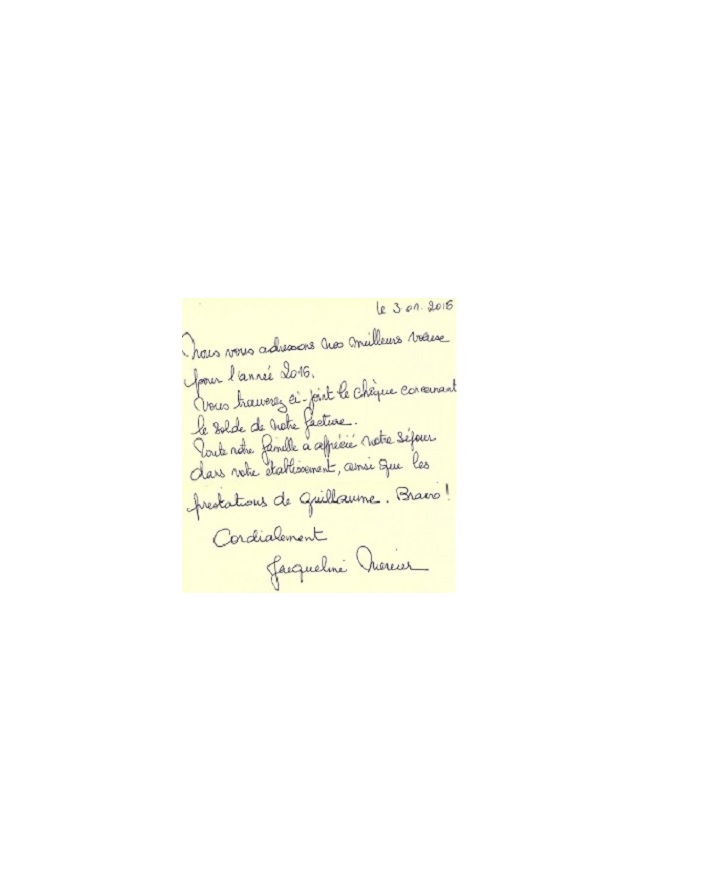 le 3.01.2016
Nous vous adressons nos meilleurs vœux
pour l'année 2016.
Vous trouverez ci-joint le chèque concernant
le solde de notre facture.
Toute notre famille a apprécié notre séjour
dans votre établissement, ainsi que les
prestations de Guillaume. Bravo !
Cordialement
Jacqueline Mercier